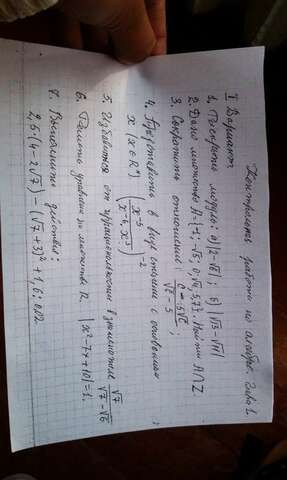 Контрольная работа по алгебре. Глава 1.
I Вариант
1. Раскрыть модуль: а) |2-√5|; б) |√13-√11|
2. Дано множество A = {7; -√5; 0; √9; 5,7}. Найти A∩Z
3. Сократить отношение:
4. Представить в виде степени с основанием
x (x∈R⁺) (x⁻⁵ / x⁻⁴·x⁻³)⁻² ;
5. Избавиться от иррациональности в знаменателе √7 / √7-√6
6. Решить уравнение на множестве R. |x²-7x+10|=1.
7. Выполнить действия:
2,6·(4-2√7)-(√7+2)²+1,6:0,02